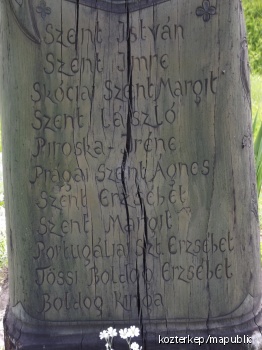 Szent István
Szent Imre
Skóciai Szent Margit
Szent László
Piroska-Iréne
Prágai Szent Ágnes
Szent Erzsébet
Szent Margit
Portugáliai Szt. Erzsébet
Tössi Boldog Erzsébet
Boldog Kinga
kozterkep/mapublic